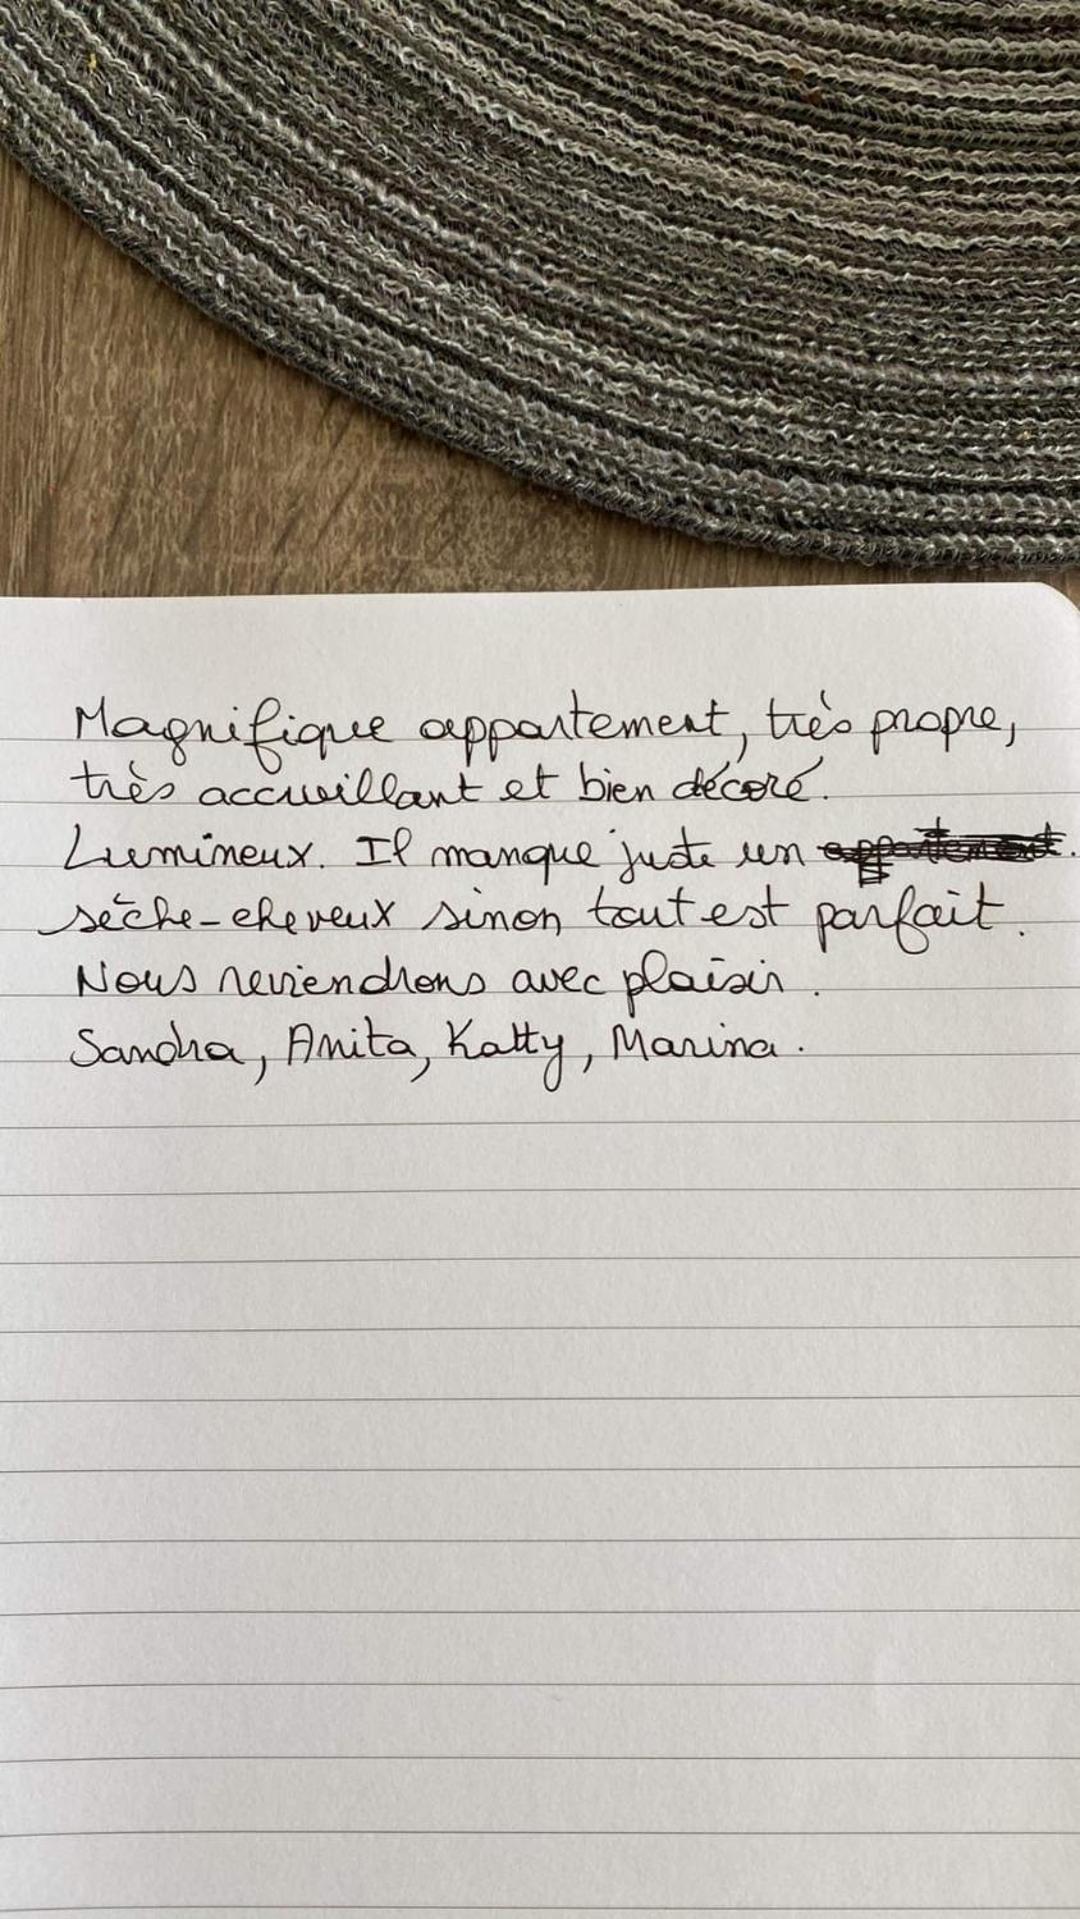 Magnifique appartement, très propre,
très accueillant et bien décoré.
Lumineux. Il manque juste un appartement.
sèche-cheveux sinon tout est parfait.
Nous reviendrons avec plaisir.
Sandra, Anita, Katty, Marina.